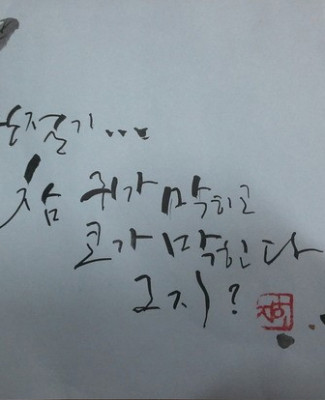 손절기...
참 귀가 막히고
코가 막힌다
그지?